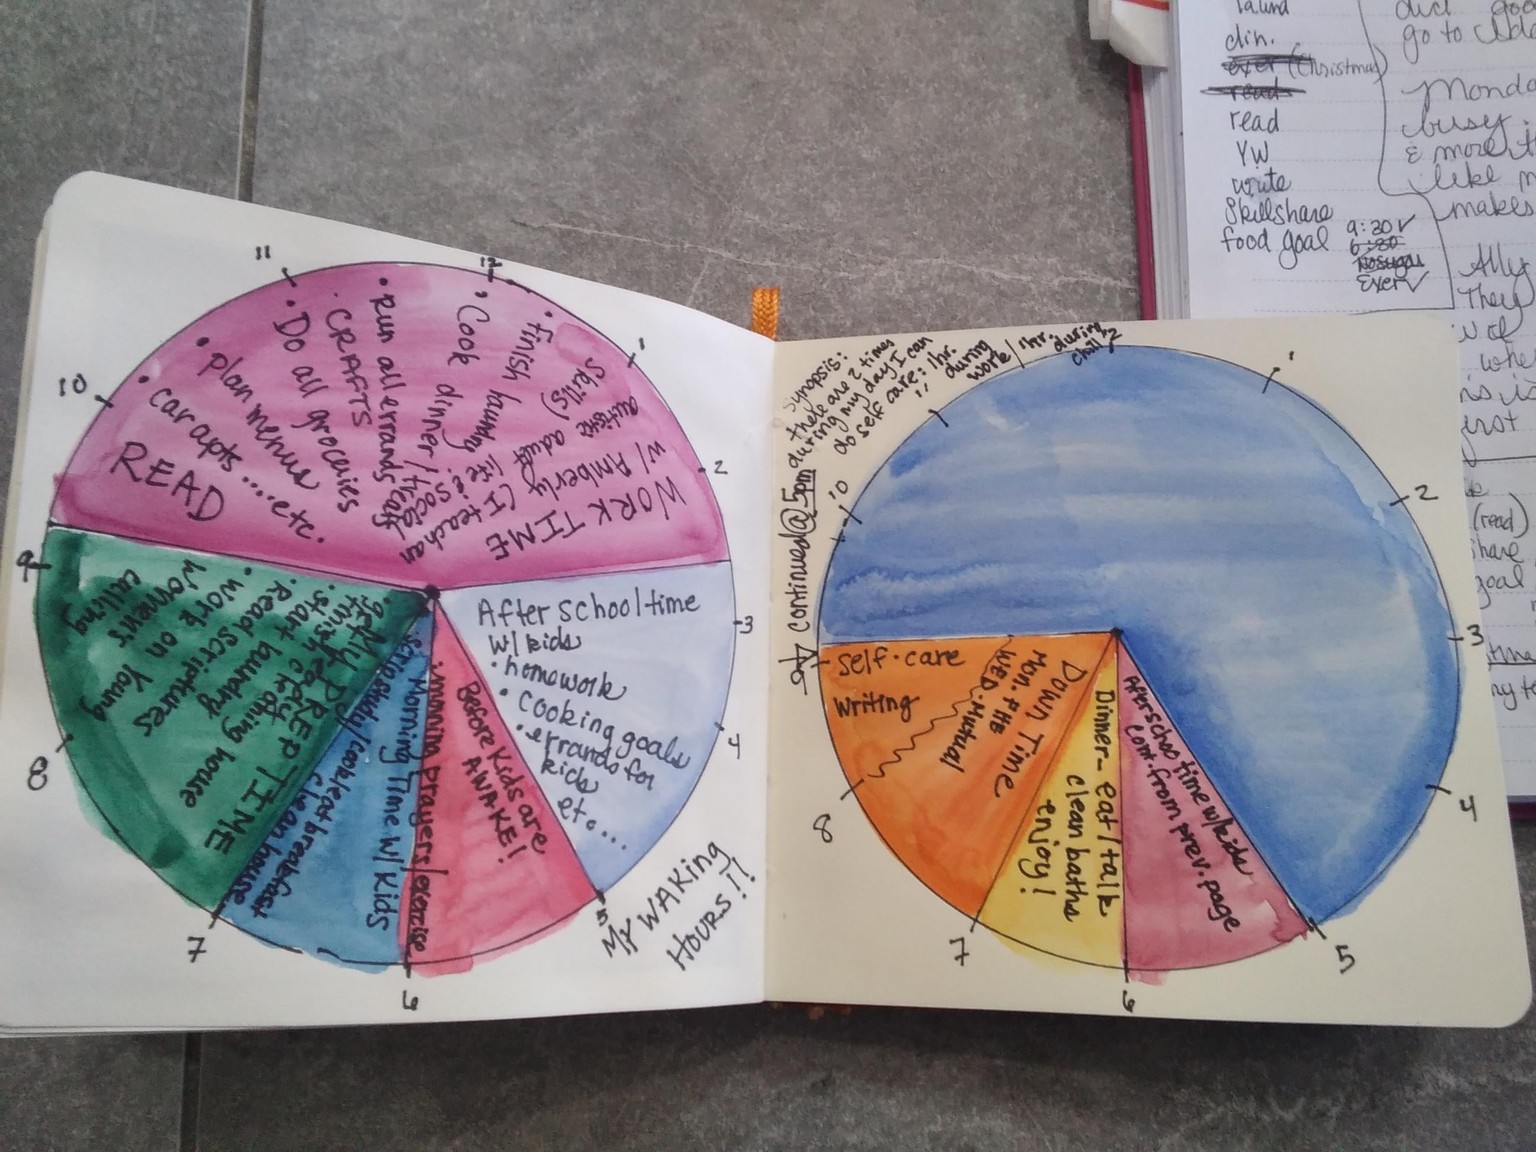 11
12
1
10
2
9
3
8
4
7
6
5
WORK TIME
w/ Amberly (I teach an
autistic adult life & social
skills)
• finish laundry
• Cook dinner / treats
• Run all errands
• CRAFTS
• Do all groceries
• plan menus
• car apts.....etc.
READ
After school time
w/ kids
• homework
• cooking goals
• errands for
kids
etc...
Before Kids are
AWAKE!
: morning prayers/exercise
Morning Time w/ Kids
scrip study/cook/eat breakfast
clean house
PREP TIME
• get my body ready
• finish cleaning house
• start laundry
• Read scriptures
• work on Young
Women's
calling
MY WAKING
HOURS!!
Synopsis:
there are 2 times
during my day I can
do self care: 1hr.
during
work / 1hr. during
chill
☆ continued @ 5pm
10
1
2
3
4
5
6
7
8
9
Self-care
writing
Down Time
Mon. FHE
WED. Mutual
Dinner- eat/talk
clean baths
enjoy!
After school time w/ kids
cont. from prev. page
laund
din.
exer (Christmas)
read
read
YW
write
Skillshare
food goal
9:30 ✓
6:30
No sugar
Exer ✓
go to
busy
& more
like
makes
Ally
They
(read)